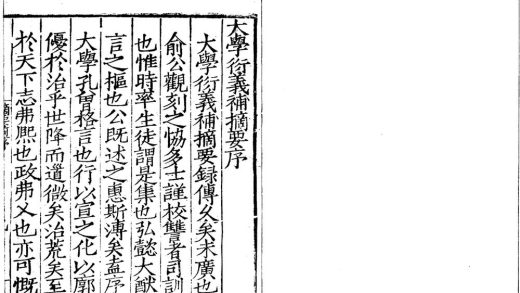 大學衍義補摘要序
大學衍義補摘要録傳久矣未廣也
俞公觀刻之恊多士謹校讐者司訓
也惟時率生徒謂是集也弘懿大猷
言之樞也公既述之惠斯溥矣盍序
大學孔曽格言也行以宣之化以廓
優於治乎世降而道微矣治荒矣至
於天下志弗熈也政弗乂也亦可慨